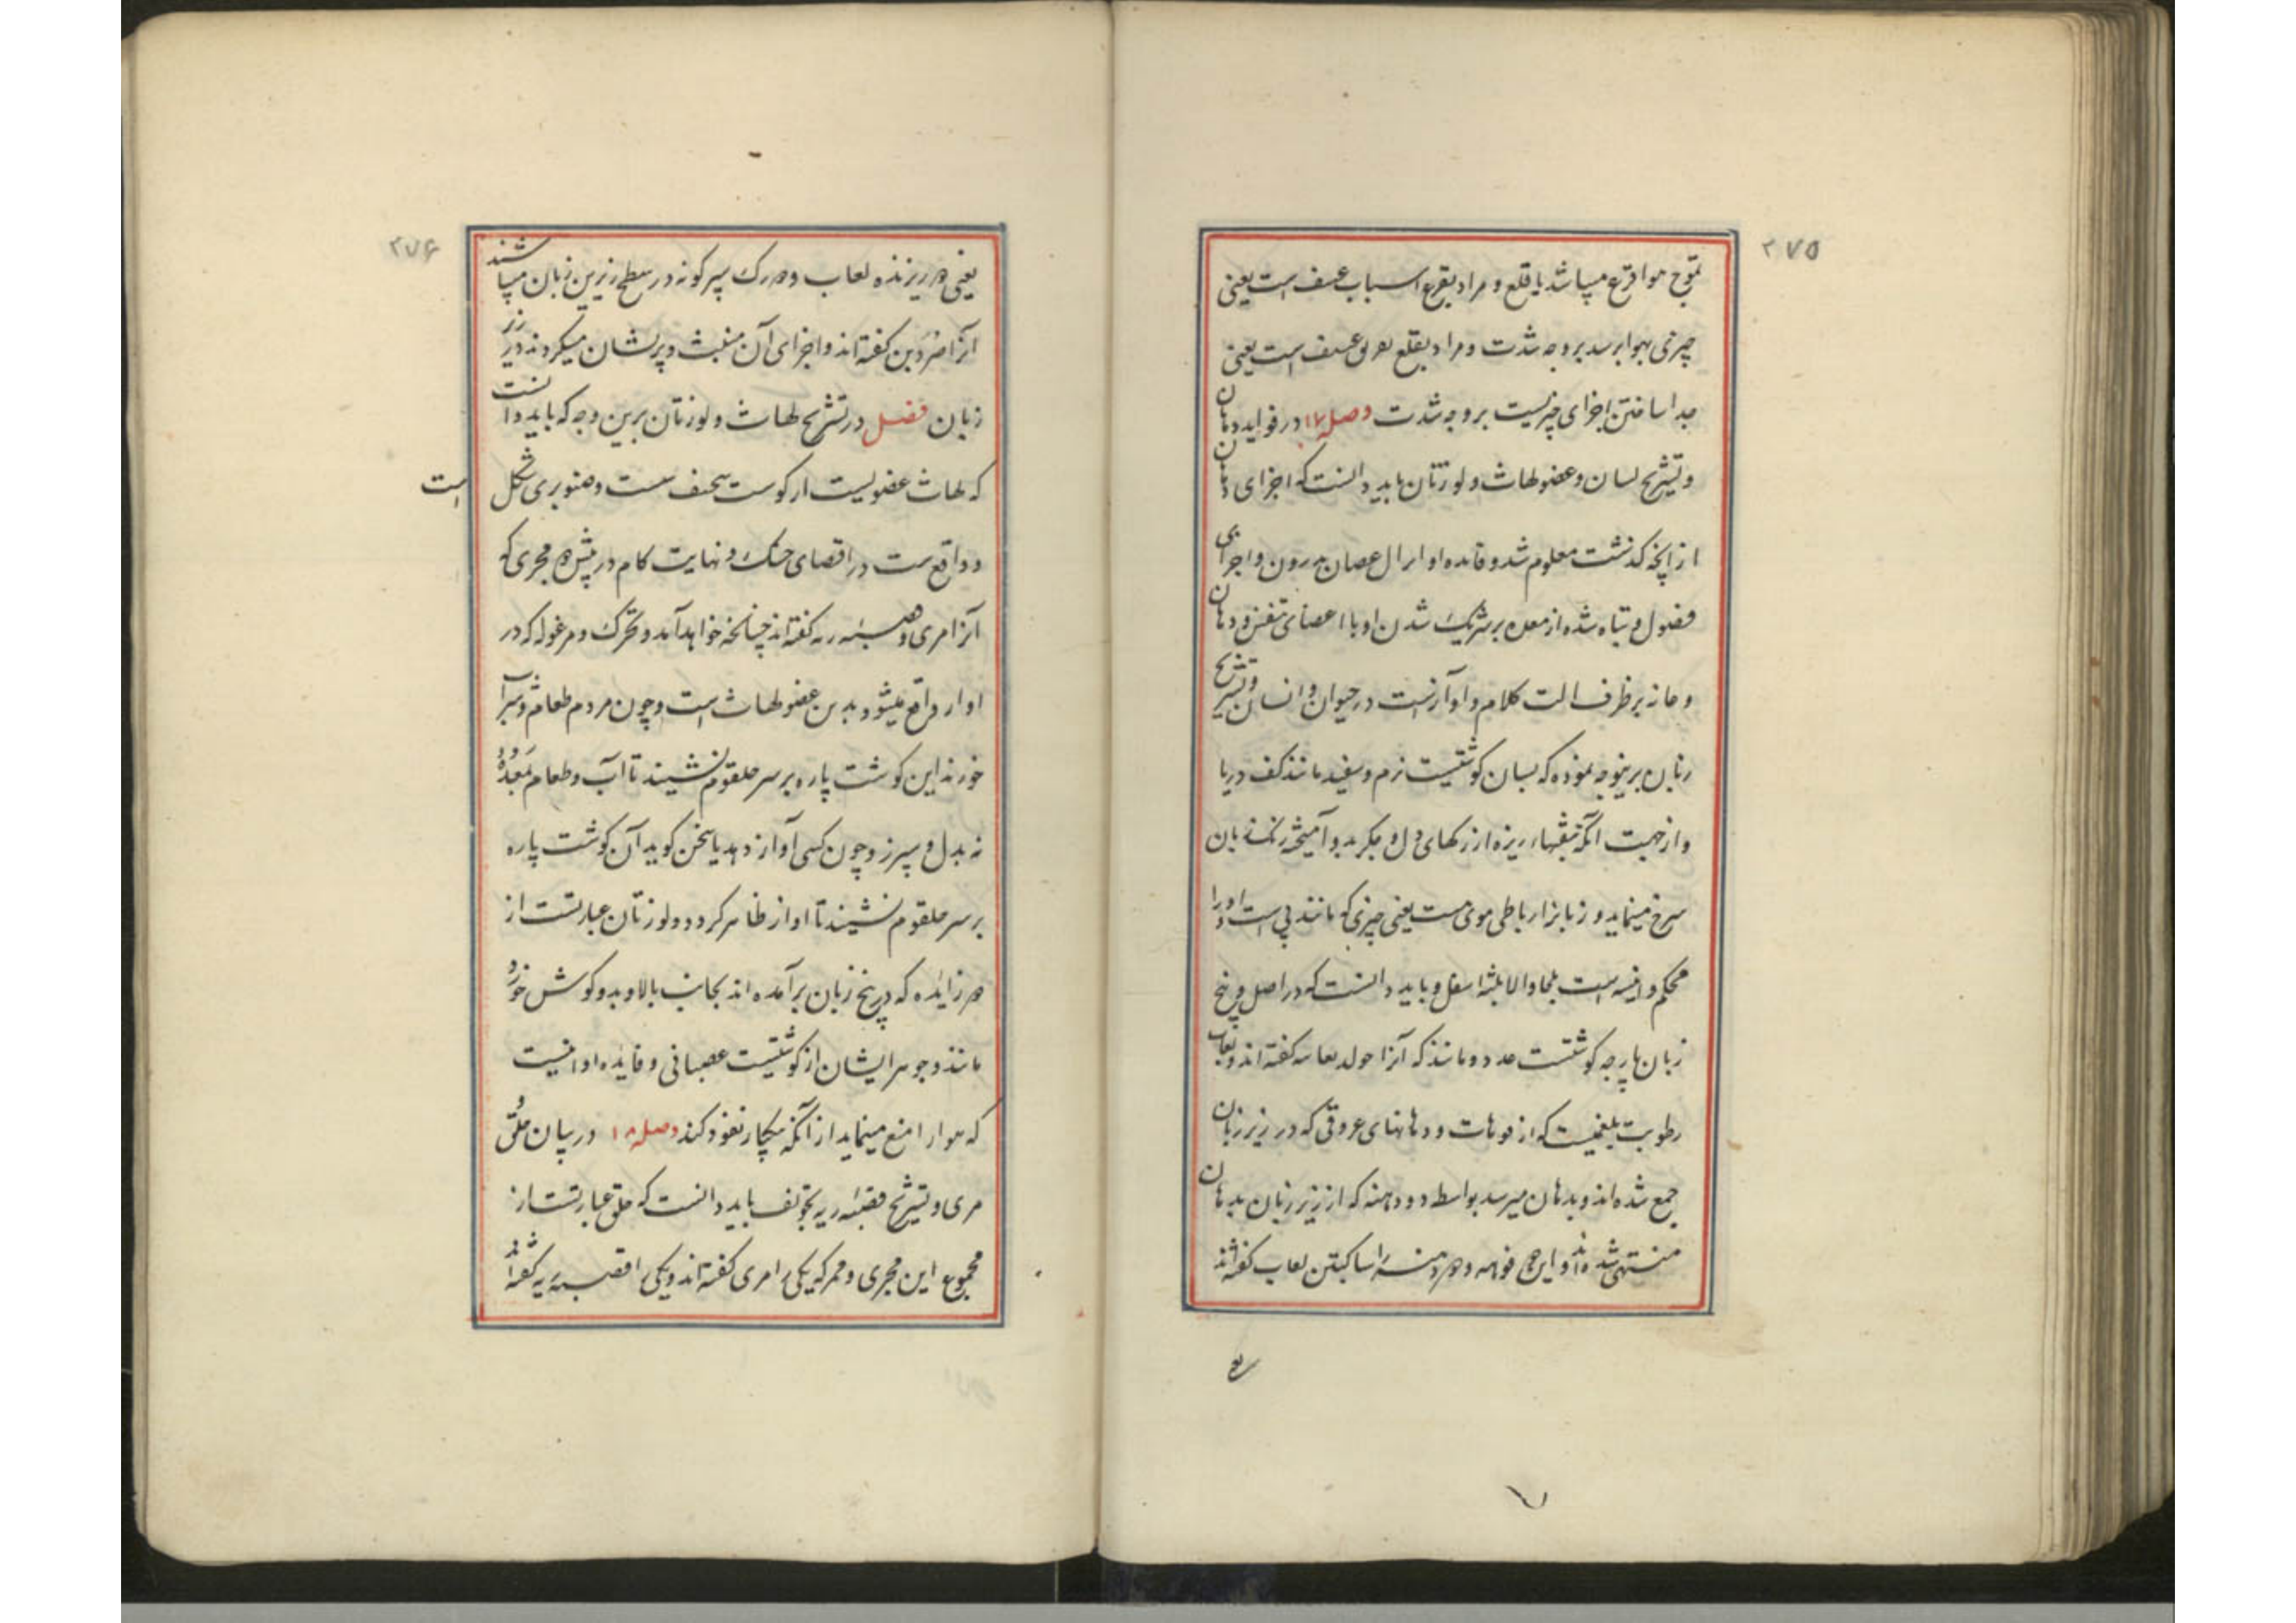 ۲۷۵
تموج هوا قرع میباشد یا قلع و مراد بقرع اسباب عنف است یعنی
چیزی بهوا برسد بر وجه شدت و مراد بقلع عنف است یعنی
جدا ساختن اجزای چیزیست بر وجه شدت وصل ۱۷ در فواید دهان
و تشریح لسان و عضو لهاث و لوزتان باید دانست که اجزای دهان
از آنچه گذشت معلوم شد و فایده او بدرون و اجرای
فضول و تباه شده از معده بر شریک شدن او با اعضای تنفس و دهان
و ظرف الت کلام و آوازست در حیوان و انسان و تشریح
زبان برینوجه نموده که لسان گوشتیست نرم و سفید مانند کف دریا
و از جهت آنکه ریزه از رکهای دل و جکر بدو آمیخته رنک زبان
سرخ مینماید و زبانرا رباطی قوی است یعنی چیزی که مانند پی است او را
محکم و باید دانست که در اصل و بیخ
زبان پارچه گوشتست غدد مانند که آنرا مولد لعاب گفته اند و لعاب
رطوبت بلغمیست که از فوهات و دهانهای عروقی که در زیر زبان
جمع شده اند و بدهان میرسد بواسطه دو دهنه که از زیر زبان بدهان
منتهی شده اند و این هر دو فوهه و هر دو دهنه را ساکبتین لعاب گفته اند
یعنی
۲۷۶
یعنی هر ریزنده لعاب و دو رک سبز کونه در سطح زیرین زبان میباشند
آنرا صردین گفته اند و اجزای آن منبث و پریشان میکردند در زیر
زبان فصل در تشریح لهاث و لوزتان برین وجه که باید دانست
که لهاث عضویست از کوشت سخیف سست و صنوبری شکل است
و واقع ست در اقصای حنک و نهایت کام در پیش هر دو مجری که
آنرا مری و قصبه ریه گفته اند چنانچه خواهد آمد و تحرک و مرغوله که در
اواز واقع میشود بدین عضو لهاث است و چون مردم طعام و شراب
خورند این کوشت پاره بر سر حلقوم نشیند تا آب و طعام بمعده رود
نه بدل و سپرز و چون کسی آواز دهد یا سخن کوید آن کوشت پاره
بر سر حلقوم نشیند تا اواز ظاهر کردد و لوزتان عبارتست از
دو زایده که در بیخ زبان برآمده اند بجانب بالا و بدو کوش خورد
مانند و جوهر ایشان از کوشتیست عصبانی و فایده او آنیست
که هوا را منع مینماید از آنکه یکبار نفوذ کند وصل ۱۸ در بیان حلق
مری و تشریح قصبه ریه باید دانست که حلق عبارتست از
مجموع این مجری و ممر که یکی را مری گفته اند و یکی را قصبه ریه گفته اند